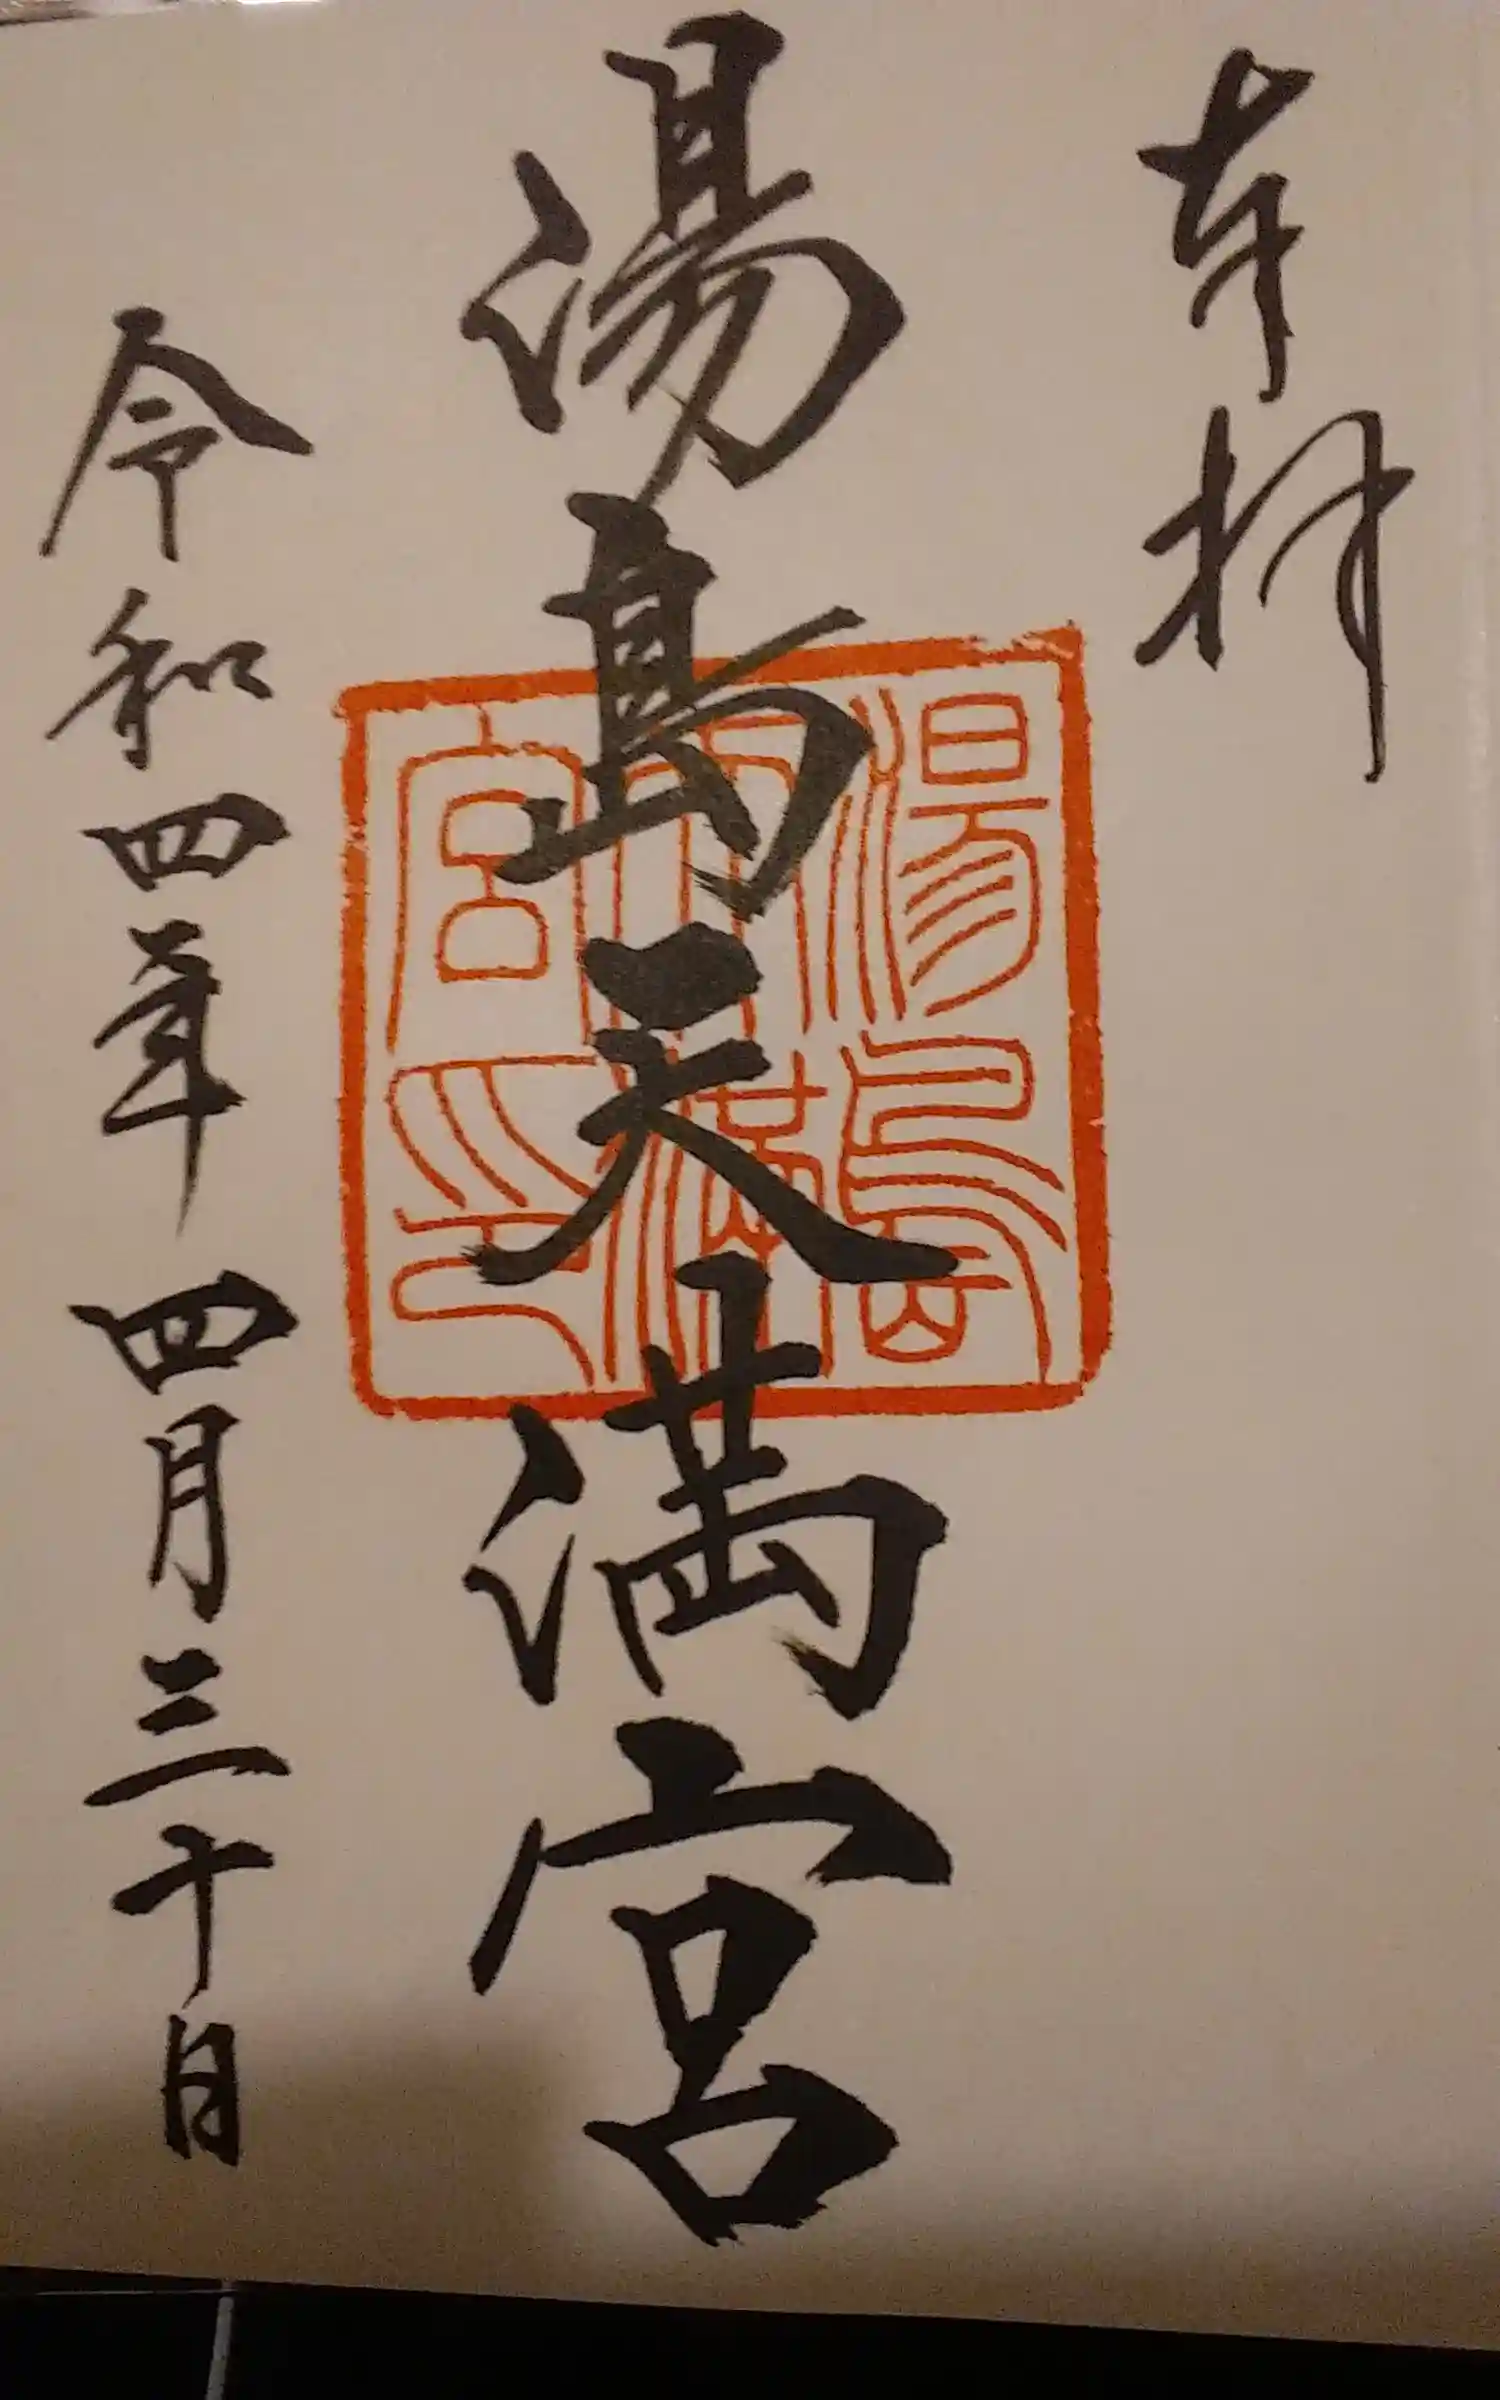 奉拝
湯島天満宮
湯島天満宮印
令和四年 四月三十日